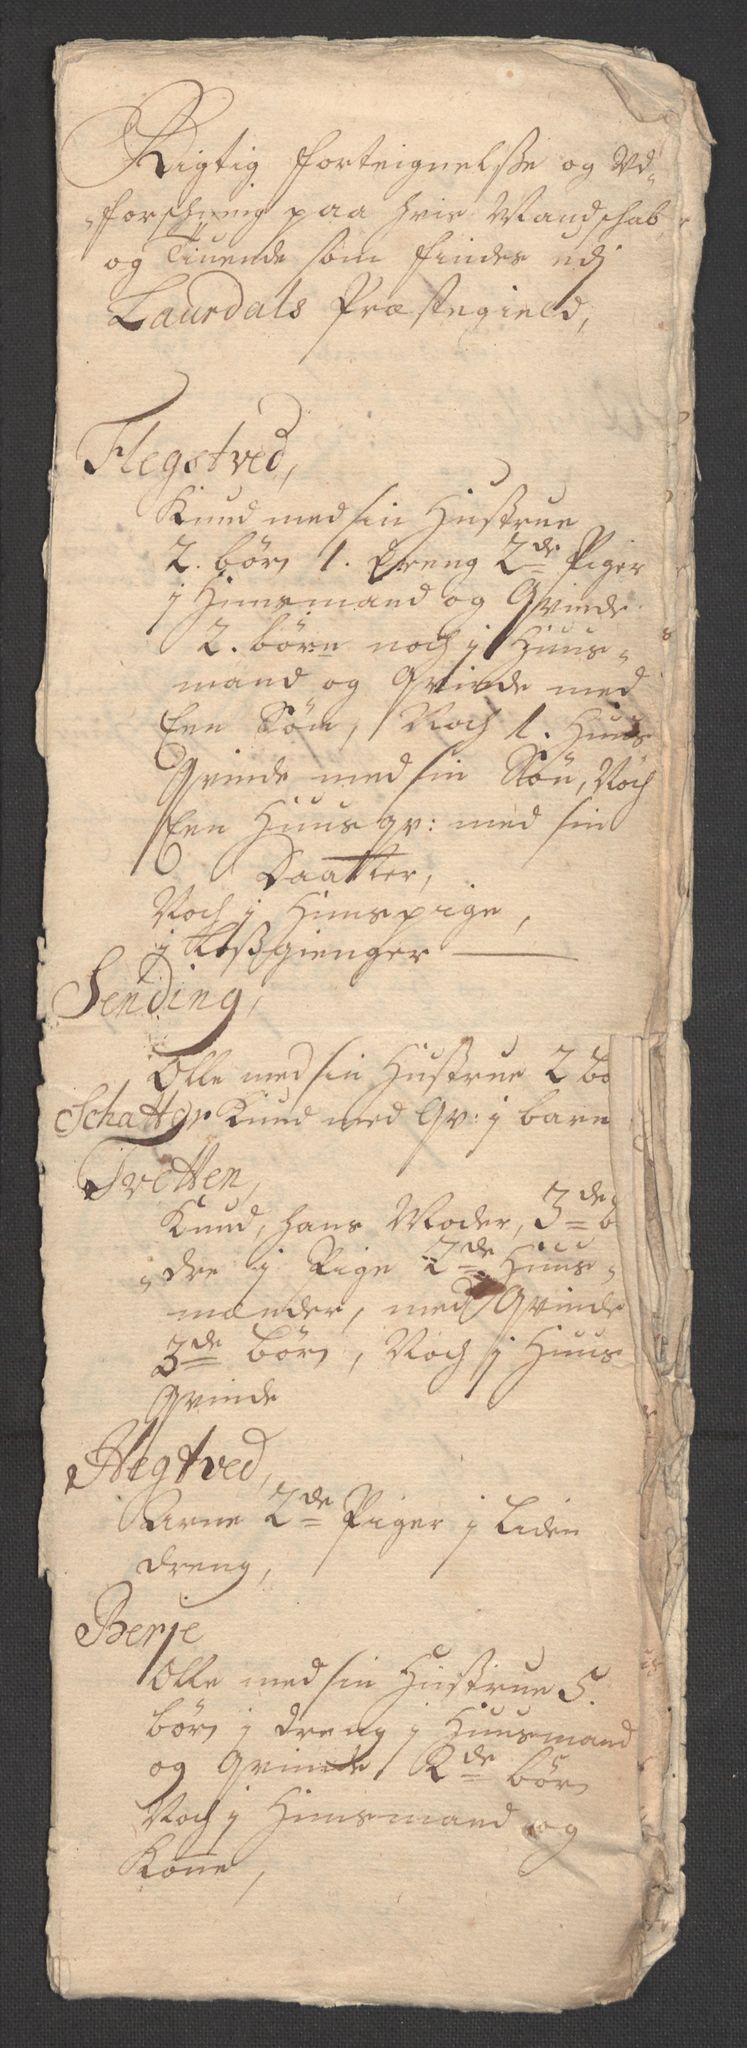 Rigtig forteignelsse og Ud-
forschning paa hvis Mandschab
og Tiuende som findes udj
Laurdals Præstegield,
Flegstved,
Knud med sin Hustrue
2. børn 1. Dreng 2de Piger
j Huusmand og Qvinde
2. børn noch j Huus-
mand og Qvinde med
Een Søn, Noch 1. Huus
Qvinde med sin Søn, Noch
Een Huus qv: med sin
Daatter,
Noch j Huuspige,
j gienger
Sending,
Olle med sin Hustrue 2 bø
Schatter Knud med Qv: j barn
Tvetten,
Knud, hans Moder, 3de b
dre j Pige 2de Huus-
mænder, med Qvinde
3de børn, Noch j Huus
Qvinde
Hegtved,
Arne 2de Piger j Liden
dreng,
Berje
Olle med sin Hustrue 5.
børn j dreng j Huusmand
og Qvinde 2de børn
Noch j Huusmand og
Kone,